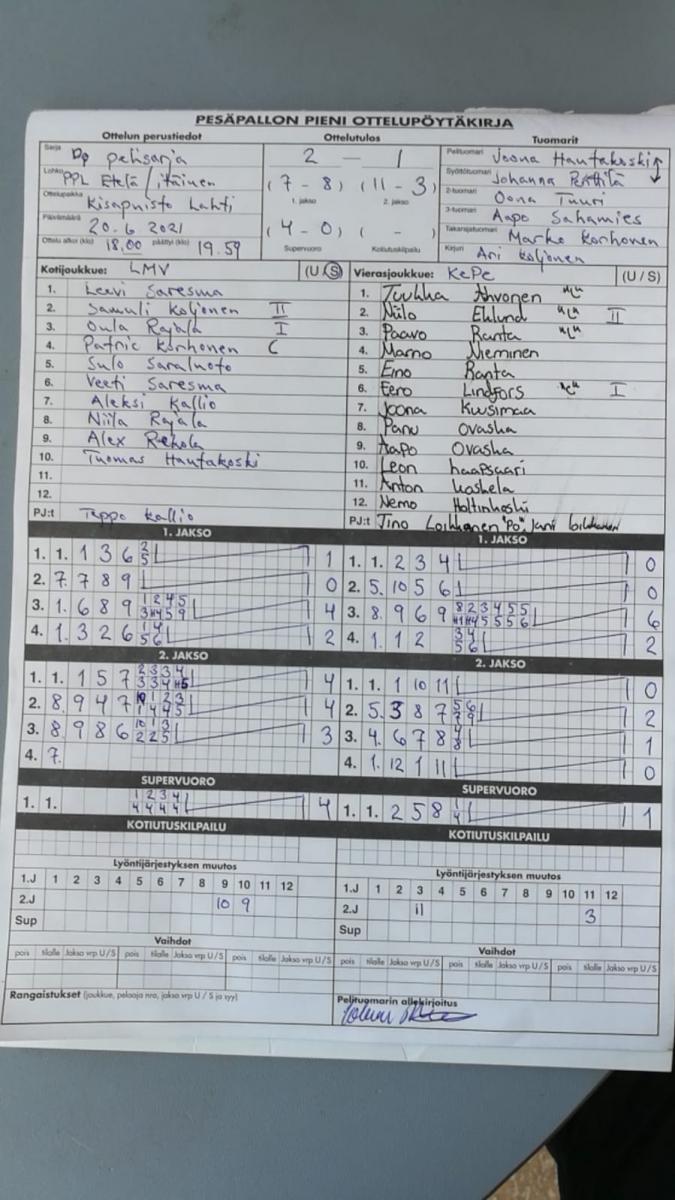 PESÄPALLON PIENI OTTELUPÖYTÄKIRJA
Ottelun perustiedot Ottelutulos Tuomarit
Sarja Dp pelisarja 2 – 1 Pelituomari Joona Hautakoski
Lohko PPL Etelä / itäinen (7 - 8) (11 - 3) Syöttötuomari Johanna
Ottelupaikka Kisapuisto Lahti 1. jakso 2. jakso 2-tuomari Oona Tuuri
Päivämäärä 20.6.2021 (4 - 0) ( - ) 3-tuomari Aapo Sahamies
Ottelu alkoi (klo) 18.00 päättyi (klo) 19.59 Supervuoro Kotiutuskilpailu Takarajatuomari Marko Korhonen
Kirjuri Ari Koljonen
Kotijoukkue: LMV (U / S) Vierasjoukkue: KePe (U / S)
1. Leevi Saresma 1. Tuukka Ahvonen
2. Samuli Koljonen II 2. Niilo Eklund II
3. Oula Rajala I 3. Paavo Ranta
4. Patric Korhonen C 4. Marno Nieminen
5. Sulo 5. Eino Ranta
6. Veeti Saresma 6. Eero Lindfors I
7. Aleksi Kallio 7. Joona Kuusimaa
8. Niila Rajala 8. Panu Ovaska
9. Alex Rekola 9. Aapo Ovaska
10. Tuomas Hautakoski 10. Leon haapsaari
11. 11. Anton Koskela
12. 12. Nemo Holtinkoski
PJ:t Teppo Kallio PJ:t Tino Loikkanen "Po", Jani
1. JAKSO 1. JAKSO
1. 1. 1 3 6 2 5 1 1. 1. 2 3 4 0
2. 7. 7 8 9 0 2. 5. 10 5 6 0
3. 1. 6 8 9 1 2 4 5 3 H4 5 9 4 3. 8. 9 6 9 8 2 3 4 5 5 H1 H4 5 5 5 6 6
4. 1. 3 2 6 1 4 5 6 2 4. 1. 1 2 3 4 5 6 2
2. JAKSO 2. JAKSO
1. 1. 1 5 7 2 3 3 4 3 3 4 H5 4 1. 1. 1 10 11 0
2. 8. 9 4 7 10 1 2 3 1 4 4 5 4 2. 5. 3 8 7 5 6 7 9 2
3. 8. 9 8 6 10 1 3 2 2 5 3 3. 4. 6 7 8 4 8 1
4. 7. 4. 1. 12 1 11 0
SUPERVUORO SUPERVUORO
1. 1. 1 2 3 4 4 4 4 4 4 1. 1. 2 5 8 1 4 1
KOTIUTUSKILPAILU KOTIUTUSKILPAILU
Lyöntijärjestyksen muutos Lyöntijärjestyksen muutos
1.J 1 2 3 4 5 6 7 8 9 10 11 12 1.J 1 2 3 4 5 6 7 8 9 10 11 12
2.J 10 9 2.J 11 3
Sup Sup
Vaihdot Vaihdot
pois tilalle Jakso vrp U / S pois tilalle Jakso vrp U / S pois tilalle Jakso vrp U / S pois tilalle Jakso vrp U / S pois tilalle Jakso vrp U / S pois tilalle Jakso vrp U / S
Rangaistukset (joukkue, pelaaja nro, jakso vrp U / S ja syy) Pelituomarin allekirjoitus